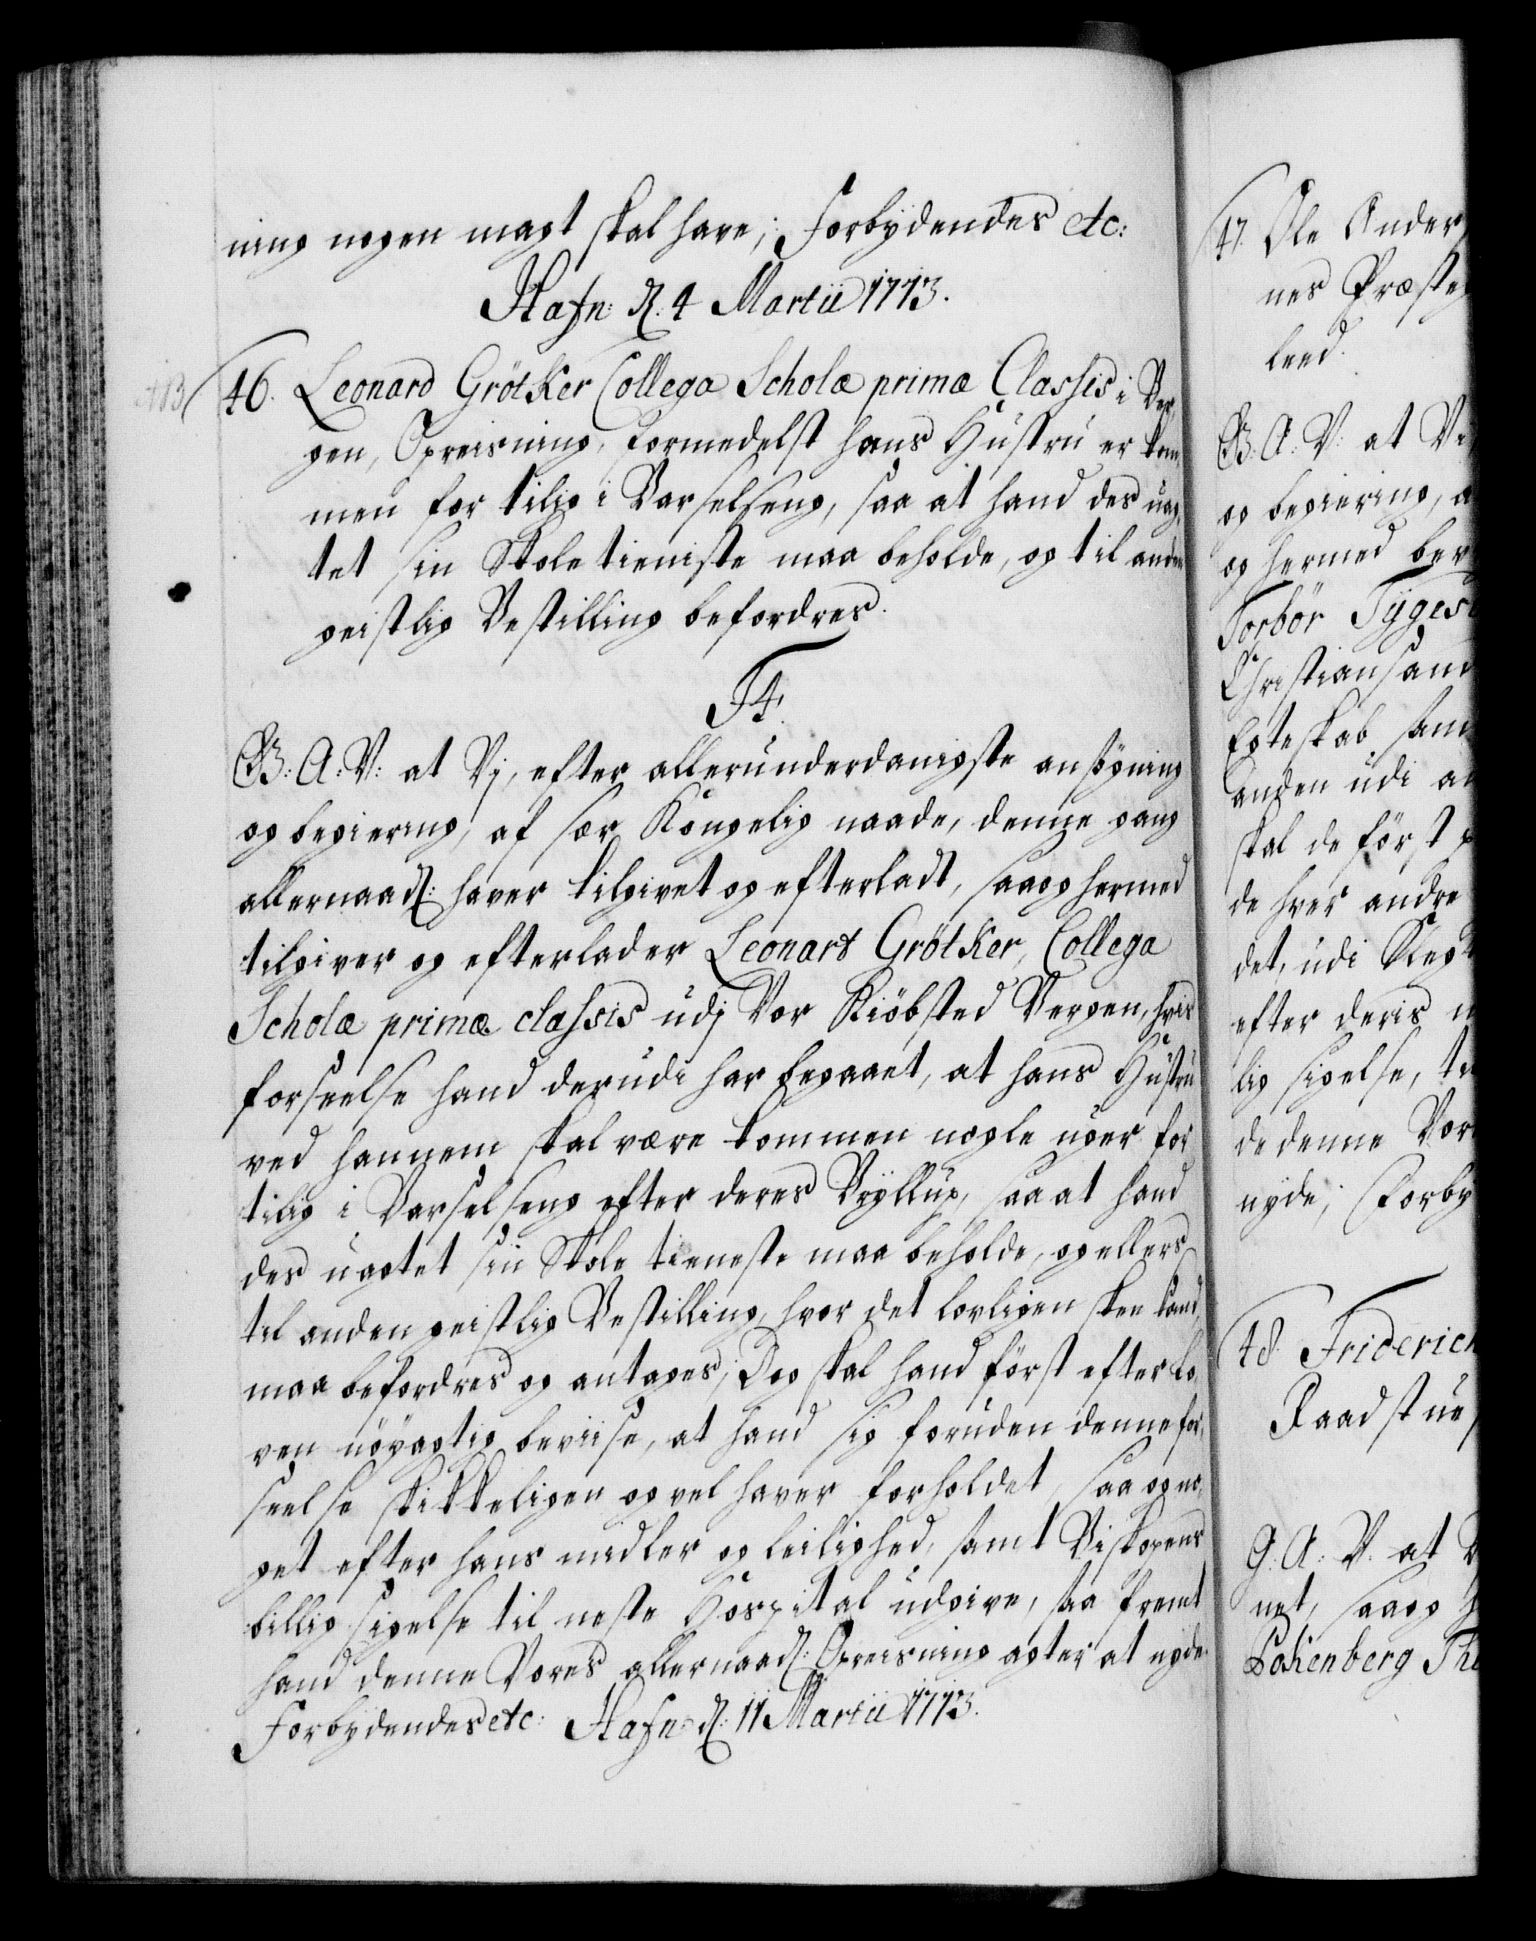 ning nogen magt skal have; Forbydendes etc:
Hafn: d. 4 Martii 1713.
46. Leonard Grötker Collega Scholæ primæ Classis i Ber,
gen, Opreisning, formedelst hans Hustru er kom,
men for tilig i Barselseng, saa at hand des uag,
tet sin Skoletieniste maa beholde, og til anden
geistlig Bestilling befordres.
F4.
G: A: V: at Vj, efter allerunderdanigste ansögning
og begiering, af sær Kongelig naade, denne gang
allernaad: haver tilgivet og efterladt, saa og hermed
tilgiver og efterlader Leonart Grötker, Collega
Scholæ primæ classis udj Vor Kiöbsted Bergen, hvis
forseelse hand derudi har begaaet, at hans Hustru
ved hannem skal være kommen nogle uger for
tilig i Barselseng efter deres Bryllup, saa at hand
des uagtet sin Skole tieneste maa beholde, og ellers
til anden geistlig Bestilling, hvor det lovligen skee kand,
maa befordres og antages; Dog skal hand först efter Lo,
ven nöyagtig beviise, at hand sig foruden denne for,
seelse skikkeligen og vel haver forholdet, saa og no,
get efter hans midler og leilighed, samt Biskopens
billig sigelse til neste Hospital udgive, saa fremt
hand denne Vores allernaad: Opreisning agter at nyde.
Forbydendes etc: Hafn: d: 11 Martii 1713.
47. Ole Ander
nes Præste
leed.
G. A: V: at Vi
og begiering, a
og hermed ber
Torbör Tÿges
Christiansand
Egteskab sam
anden udi a
skal de först p
de hver andre
det, udi Slegt
efter deris m
lig sigelse, ti
de denne Vor
nyde; Forby
48. Friderich
Raadstue
G. A: V. at V
net, saa og h